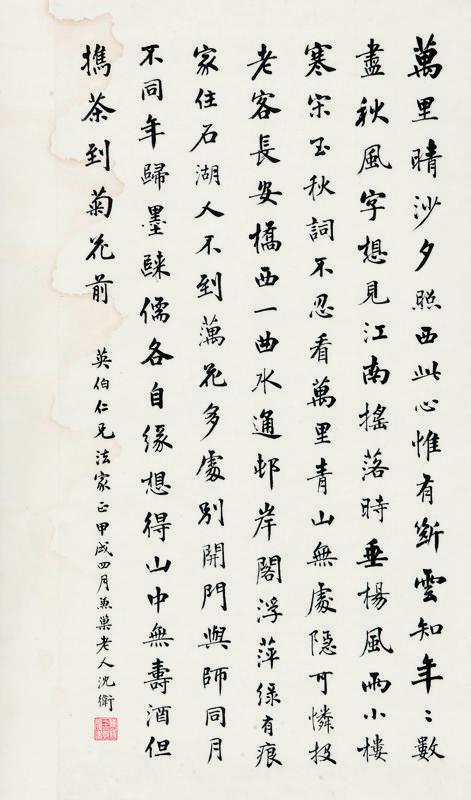 萬里晴沙夕照西此心惟有斷雲知年〻數
盡秋風字想見江南搖落時垂楊風雨小樓
寒宋玉秋詞不忍看萬里青山無處隱可憐投
老客長安橋西一曲水通邨岸閣浮萍綠有痕
家住石湖人不到藕花多處別開門與師同月
不同年歸墨歸儒各自緣想得山中無壽酒但
擕茶到菊花前
英伯仁兄法家正甲戌四月兼巢老人沈衛